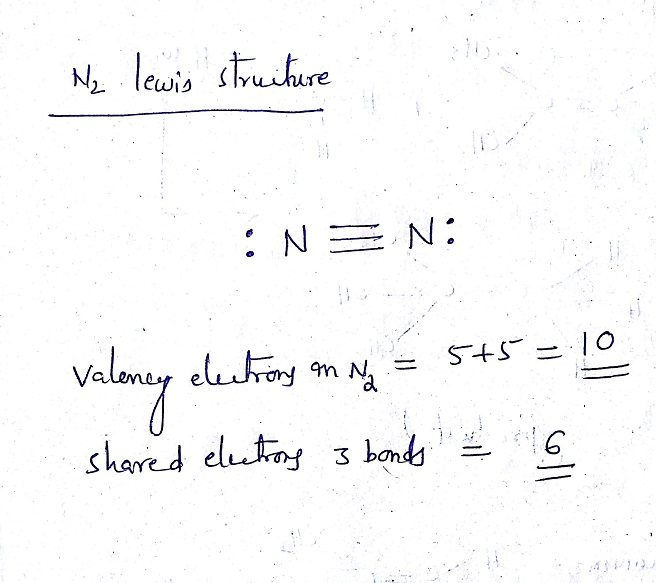 N₂ lewis structure
: N ≡ N :
Valency electrons on N₂ = 5+5 = 10
shared electrons 3 bonds = 6